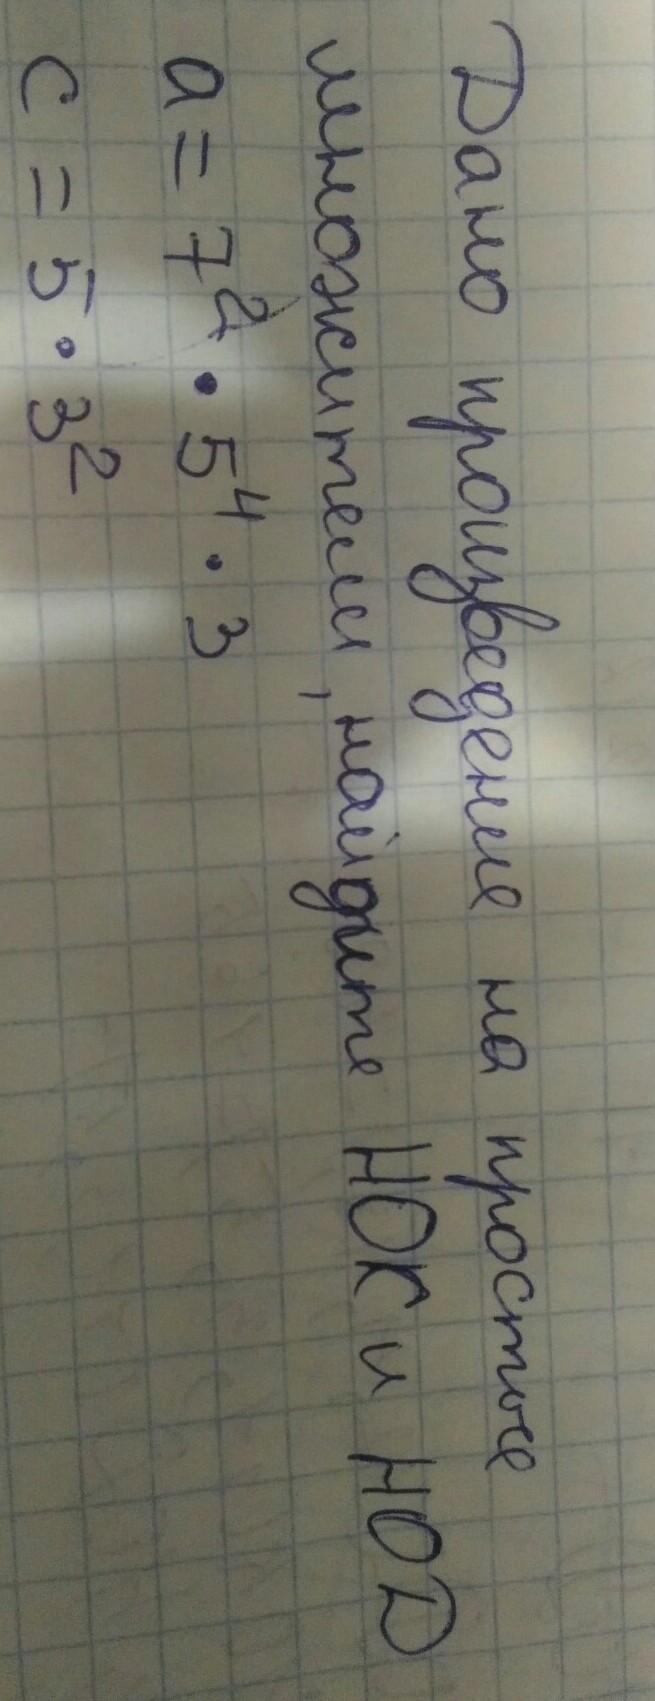 Дано произведение на простые
множители, найдите НОК и НОД
a = 7² · 5⁴ · 3
c = 5 · 3²